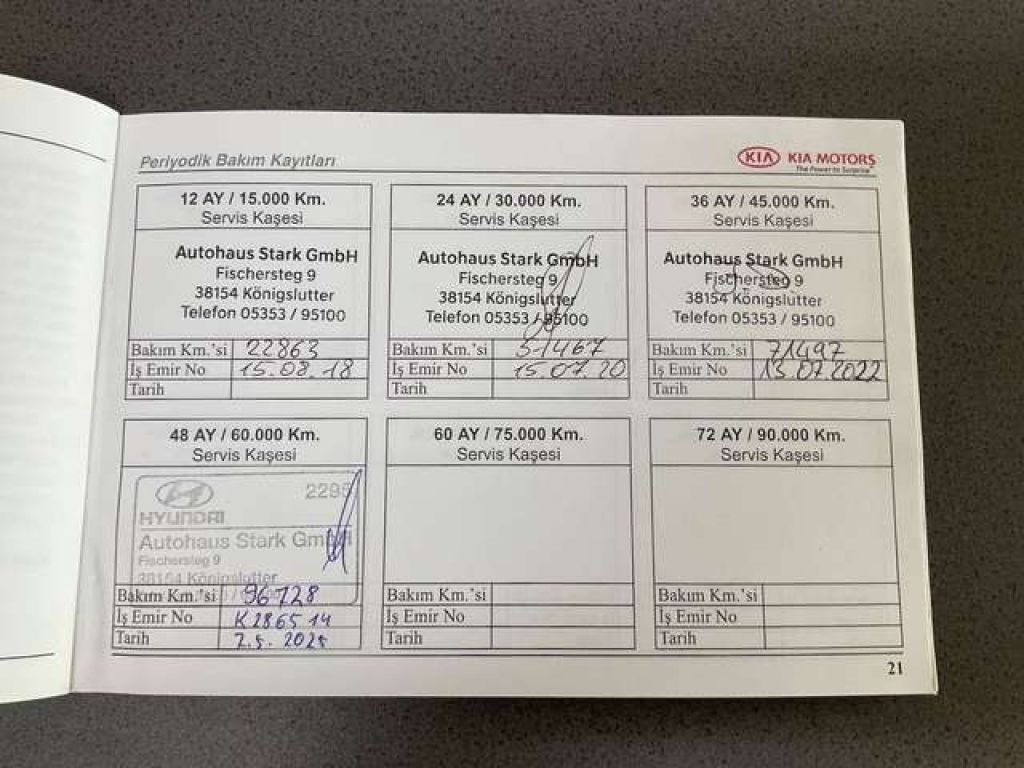 Periyodik Bakım Kayıtları
KIA KIA MOTORS
The Power to Surprise
12 AY / 15.000 Km.
Servis Kaşesi
Autohaus Stark GmbH
Fischersteg 9
38154 Königslutter
Telefon 05353 / 95100
Bakım Km.'si 22863
İş Emir No 15.08.18
Tarih
24 AY / 30.000 Km.
Servis Kaşesi
Autohaus Stark GmbH
Fischersteg 9
38154 Königslutter
Telefon 05353 / 95100
Bakım Km.'si 51467
İş Emir No 15.07.20
Tarih
36 AY / 45.000 Km.
Servis Kaşesi
Autohaus Stark GmbH
Fischersteg 9
38154 Königslutter
Telefon 05353 / 95100
Bakım Km.'si 71497
İş Emir No 13.07.2022
Tarih
48 AY / 60.000 Km.
Servis Kaşesi
2295
HYUNDAI
Autohaus Stark GmbH
Fischersteg 9
38154 Königslutter
Bakım Km.'si 96728
İş Emir No K286514
Tarih
60 AY / 75.000 Km.
Servis Kaşesi
Bakım Km.'si
İş Emir No
Tarih
72 AY / 90.000 Km.
Servis Kaşesi
Bakım Km.'si
İş Emir No
Tarih
21